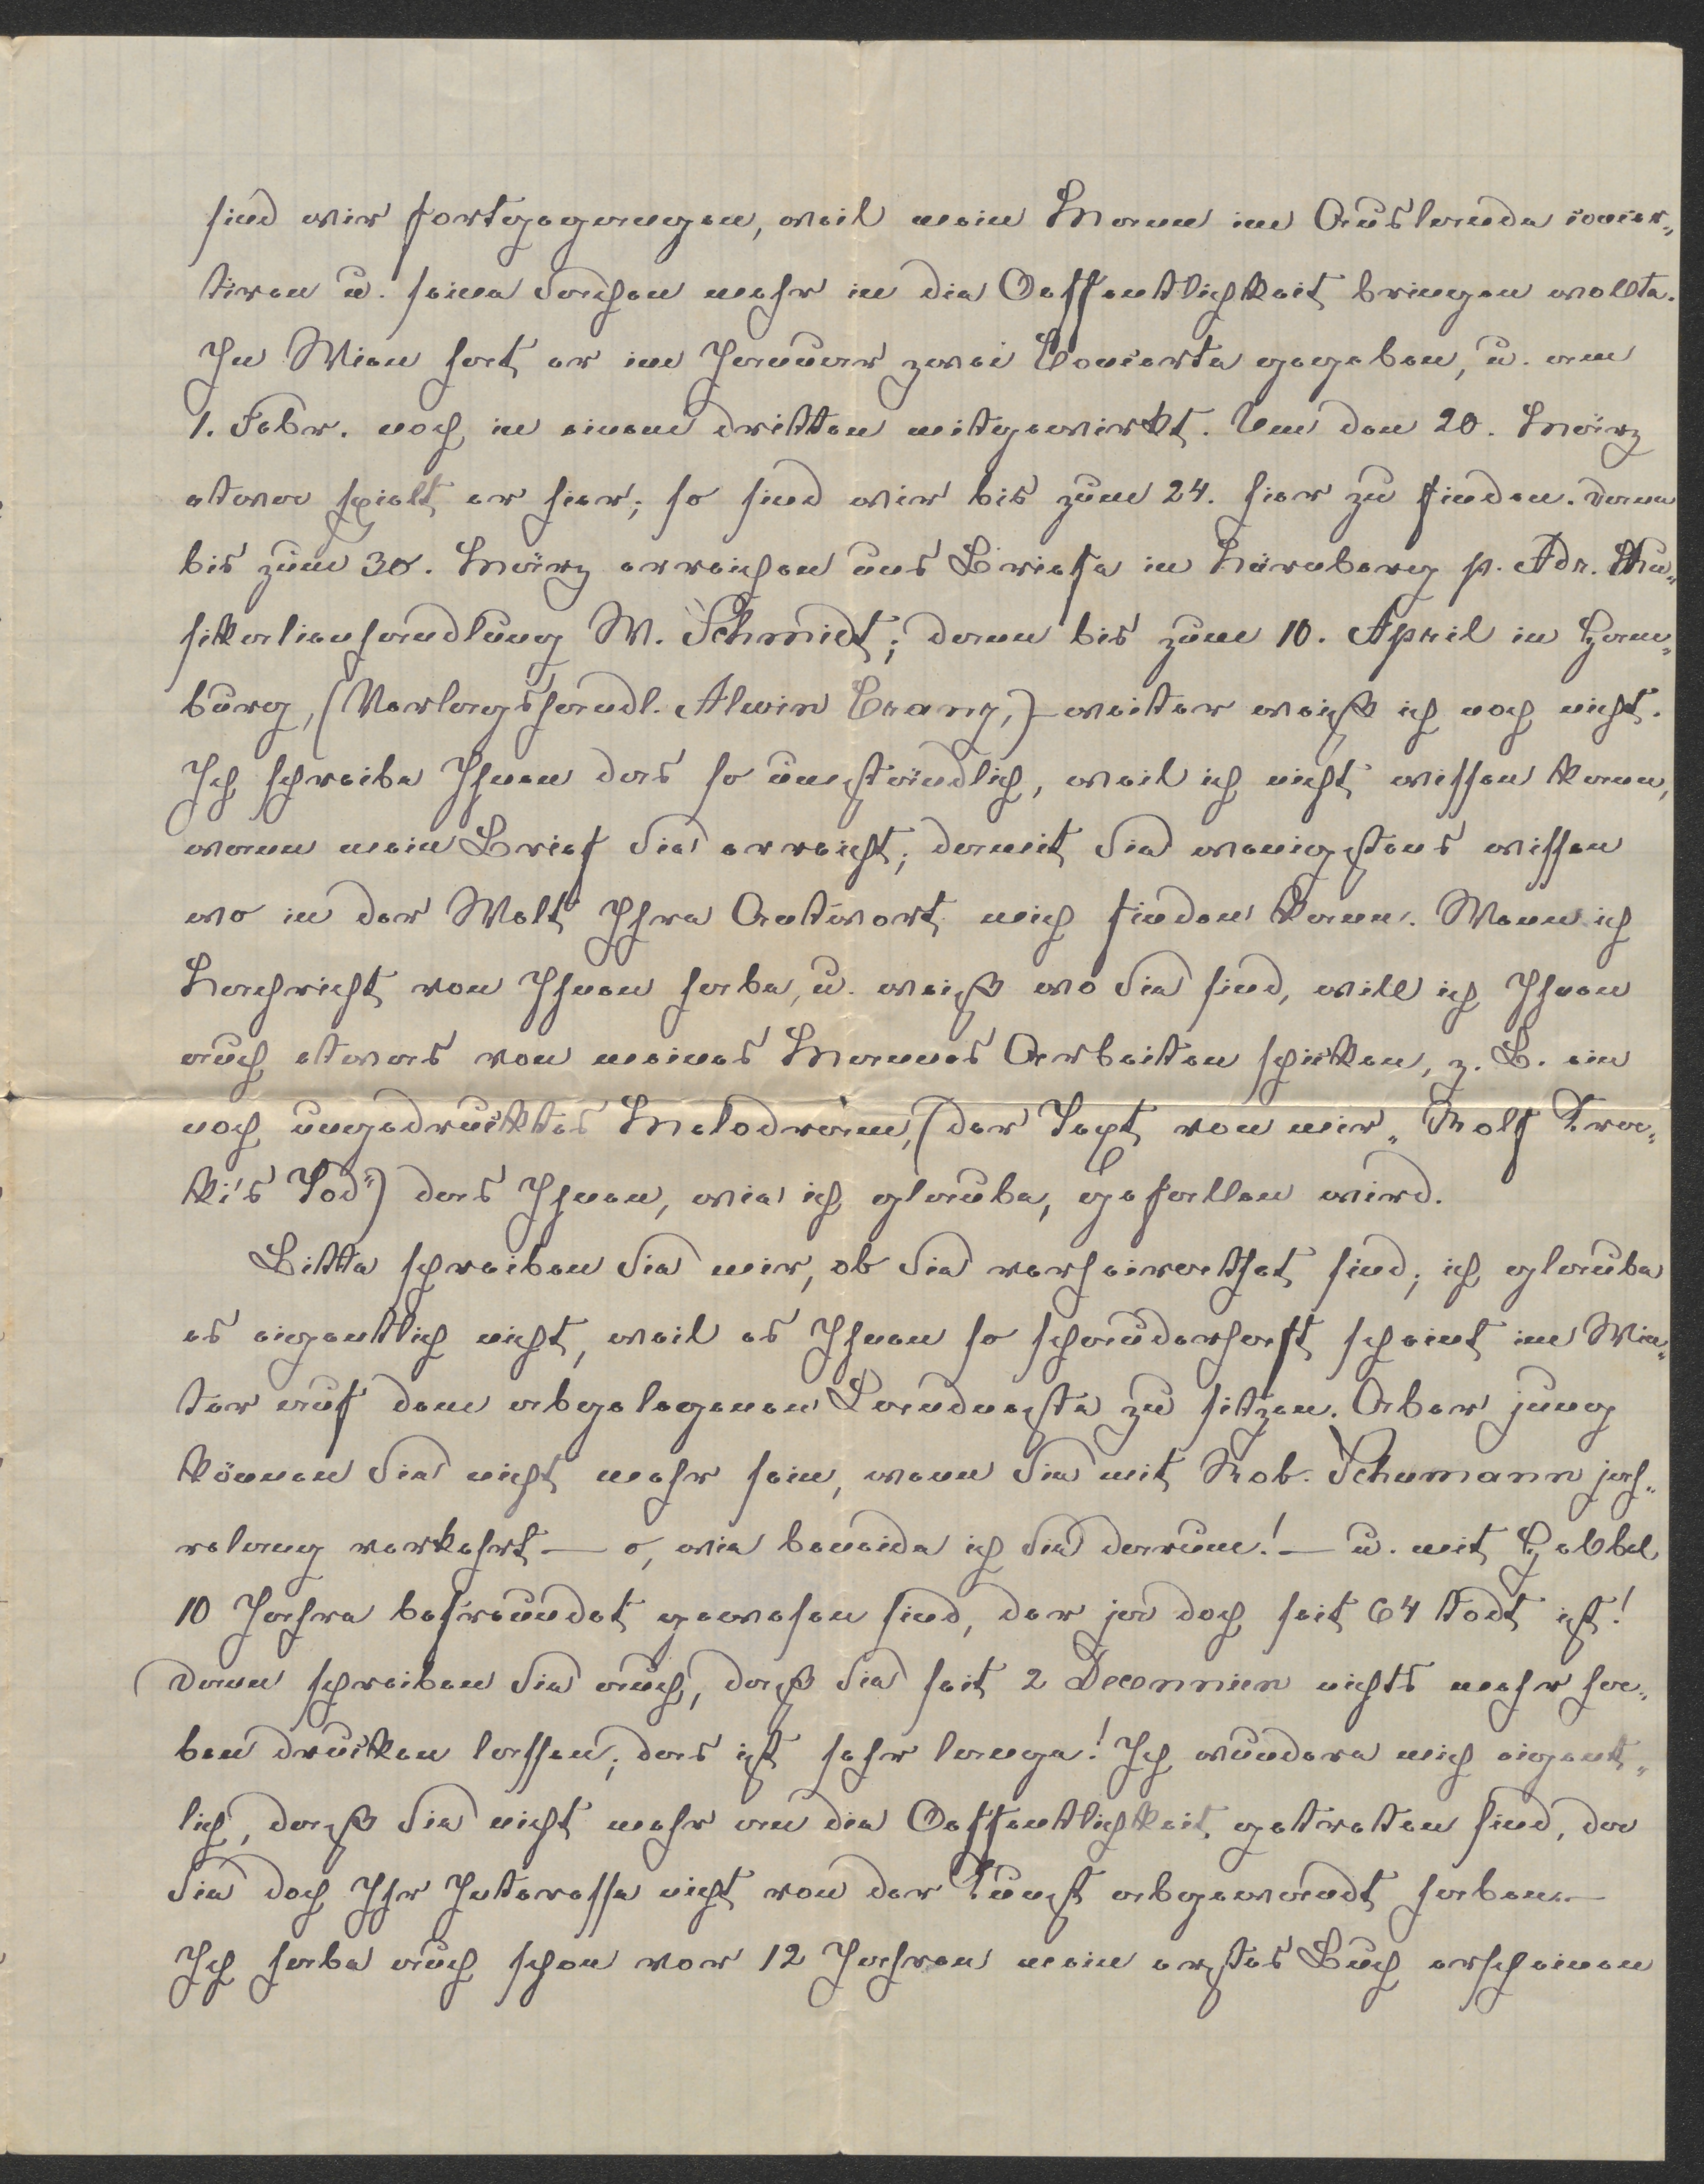 sind wir fortgegangen, weil mein Mann im Auslande concer-
tiren u. seine Sachen mehr in die Oeffentlichkeit bringen wollte.
In Wien hat er im Januar zwei Concerte gegeben, u. am
1. Febr. noch in einem dritten mitgewirkt. Um den 20. März
etwa spielt er hier; so sind wir bis zum 24. hier zu finden. Dann
bis zum 30. März erreichen uns Briefe in Nürnberg p. Adr. Mu-
sikalienhandlung W. Schmidt; dann bis zum 10. April in Ham-
burg, (Verlagshandl. Alwin Cranz,) – weiter weiß ich noch nicht.
Ich schreibe Ihnen das so umständlich, weil ich nicht wissen kann,
wann mein Brief Sie erreicht; damit Sie wenigstens wissen
wo in der Welt Ihre Antwort mich finden kann. Wenn ich
Nachricht von Ihnen habe, u. weiß wo Sie sind, will ich Ihnen
auch etwas von meines Mannes Arbeiten schicken, z. B. ein
noch ungedrucktes Melodram, (der Text von mir „Rolf Kra-
ki's Tod") das Ihnen, wie ich glaube, gefallen wird.
Bitte schreiben Sie mir, ob Sie verheirathet sind; ich glaube
es eigentlich nicht, weil es Ihnen so schauderhaft scheint im Win-
ter auf dem abgelegenen Landneste zu sitzen. Aber jung
können Sie nicht mehr sein, wenn Sie mit Rob. Schumann jah-
relang verkehrt – o, wie beneide ich Sie darum! – u. mit Hebbel
10 Jahre befreundet gewesen sind, der ja doch seit 64 todt ist!
Dann schreiben Sie auch, daß Sie seit 2 Decennien nichts mehr ha-
ben drucken lassen; das ist sehr lange! Ich wundere mich eigent-
lich, daß Sie nicht mehr an die Oeffentlichkeit getreten sind, da
Sie doch Ihr Interesse nicht von der Kunst abgewandt haben. –
Ich habe auch schon vor 12 Jahren mein erstes Buch erscheinen